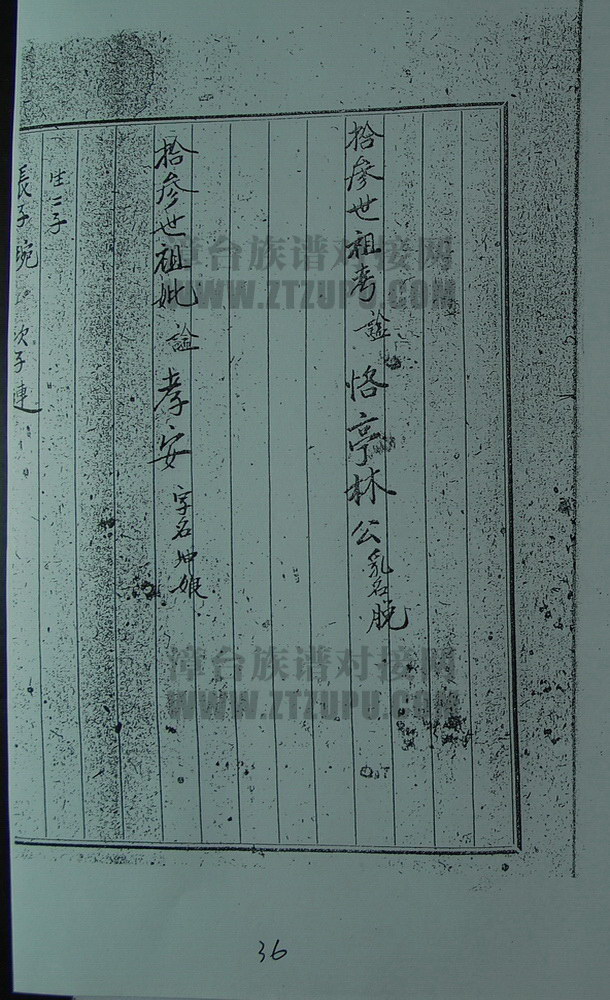 拾參世祖考 謚 恪亭林公 乳名脫
拾參世祖妣 謚 孝安 字名 娘
生二子
長子琬 次子連
漳台族谱对接网
WWW.ZTZUPU.COM
漳台族谱对接网
WWW.ZTZUPU.COM
36